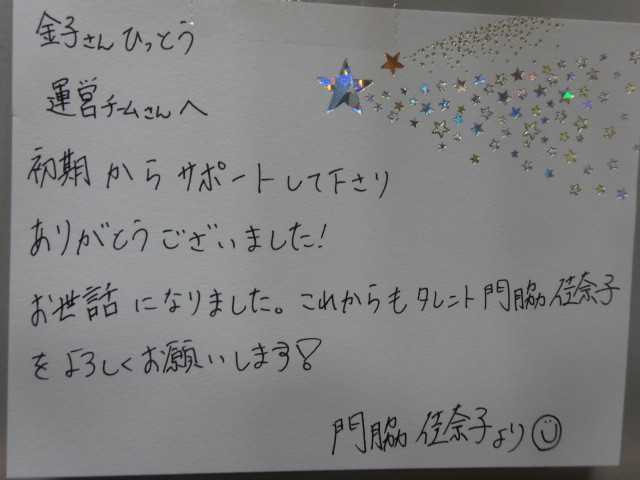 金子さんひっとう
運営チームさんへ
初期からサポートして下さり
ありがとうございました!
お世話になりました。これからもタレント門脇佳奈子
をよろしくお願いします!
門脇佳奈子より